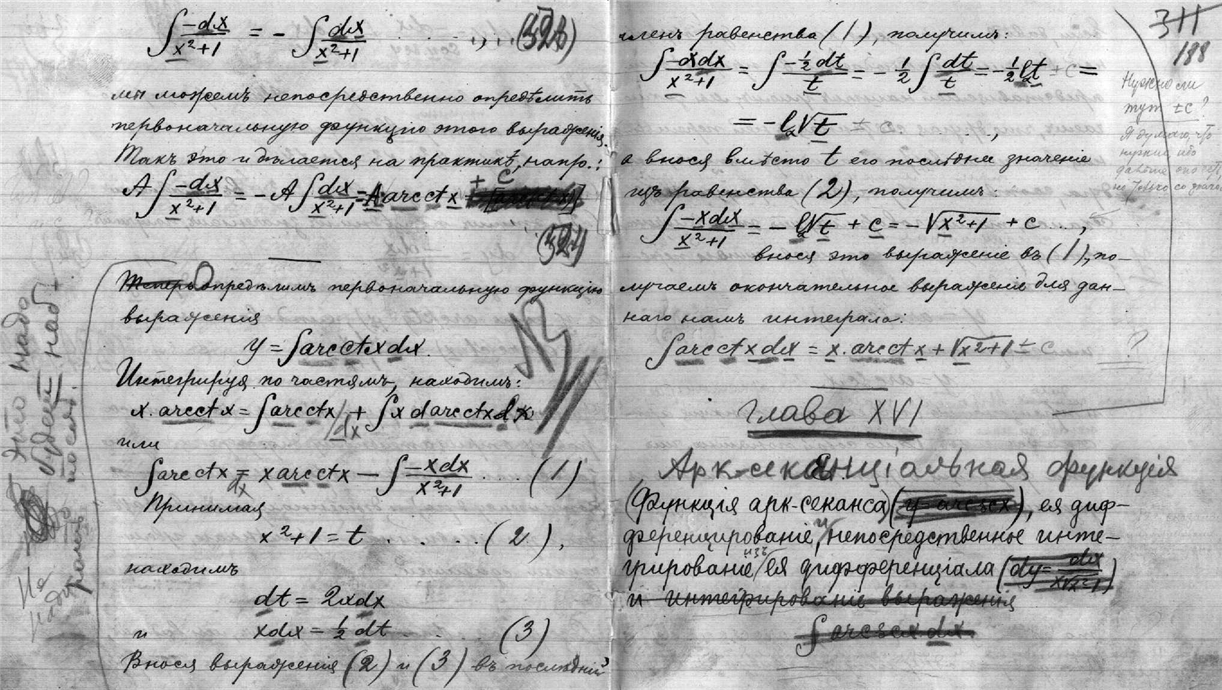 ∫ -dx/x²+1 = - ∫ dx/x²+1 . . . . (526)
мы можемъ непосредственно опредѣлить
первоначальную функцію этого выраженія.
Такъ это и дѣлается на практикѣ, напр.:
A∫ -dx/x²+1 = -A∫ dx/x²+1 = A arcctx + C
(527)
Теперь Опредѣлимъ первоначальную функцію
выраженія
y = ∫arcctxdx.
Интегрируя по частямъ, находимъ:
x.arcctx = ∫arcctx dx + ∫x darcctxdx
или
∫arcctx dx = x arcctx - ∫ -xdx/x²+1 . . . . (1)
Принимая
x²+1 = t . . . . (2),
находимъ
dt = 2xdx
и xdx = ½ dt . . . . (3)
Внося выраженія (2) и (3) въ послѣдній
Это надо
будетъ наб-
послѣ.
311
188
членъ равенства (1), получимъ:
∫ -xdx/x²+1 = ∫ -½dt/t = -½ ∫ dt/t = -½ lt + c =
= -l√t ,
а внося вмѣсто t его послѣднее значеніе
изъ равенства (2), получимъ:
∫ -xdx/x²+1 = -l√t + c = -√x²+1 + c ,
внося это выраженіе въ (1), по-
лучаемъ окончательное выраженіе для дан-
наго намъ интеграла:
∫arcctxdx = x.arcctx + √x²+1 ± c
Нужно ли
тут ±C?
Я думаю, что
глава XVI
Арк-секенціальная функція
(Функція арк-секанса) (y=arcsecx), ея диф-
ференцированіе, и непосредственное инте-
грированіе изъ ея дифференціала (dy = dx/x√x²-1)
и интегрированіе выраженія
∫arcsecxdx.